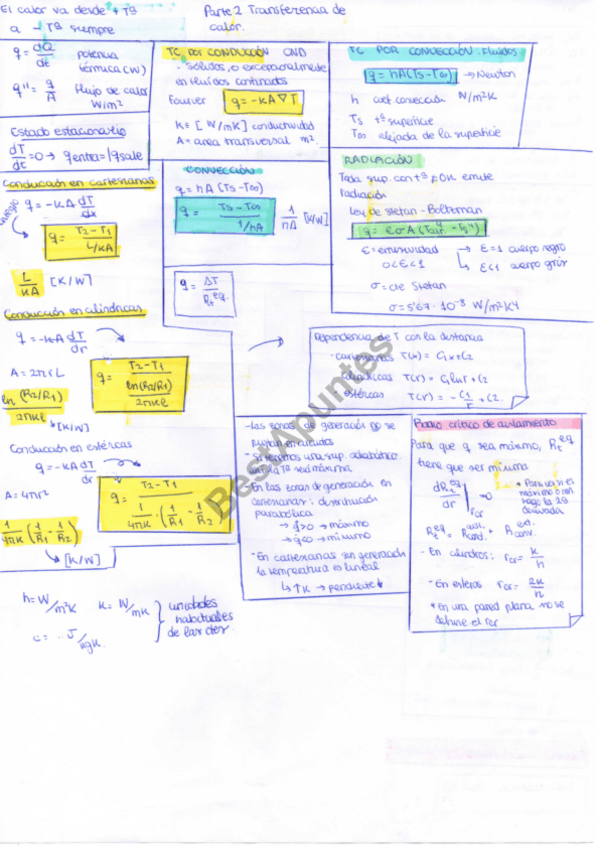 El calor va desde + Tª
a - Tª siempre
Parte 2 Transferencia de
calor.
q = dQ/dt potencia
térmica (W)
q'' = q/A Flujo de calor
W/m²
Estado estacionario
dT/dt = 0 → qentra = |qsale
Conducción en cartesianas
q = -KA dT/dx
q = (T2 - T1)/(L/KA)
L/KA [K/W]
Conducción en cilíndricas
q = -KA dT/dr
A = 2πrL
q = (T2 - T1)/(ln(R2/R1)/2πKL)
ln(R2/R1)/2πKL
↳ [K/W]
Conducción en esféricas
q = -KA dT/dr
A = 4πr²
q = (T2 - T1)/(1/4πK · (1/R1 - 1/R2))
1/4πK (1/R1 - 1/R2)
↳ [K/W]
h = W/m²K K = W/mK
c = J/kgK
unidades
habituales
de las ctes.
TC POR CONDUCCIÓN CND
- Sólidos, o excepcionalmente
en fluidos confinados
Fourier q = -KA∇T
K = [W/mK] conductividad
A = área transversal m².
CONVECCIÓN
q = hA(Ts - T∞)
q = (Ts - T∞)/(1/hA) 1/hA [K/W]
q = ΔT/Rt eq.
TC POR CONVECCIÓN: Fluidos
q = hA(Ts - T∞) → Newton
h coef convección W/m²K
Ts tª superficie
T∞ alejada de la superficie
RADIACIÓN
Toda sup. con tª ≠ 0K emite
radiación
Ley de Stefan - Boltzman
ε = emisividad → ε = 1 cuerpo negro
0<ε<1 ↳ ε<1 cuerpo gris
σ = cte Stefan
σ = 5'67 · 10⁻⁸ W/m²K⁴
Dependencia de T con la distancia
- cartesianas T(x) = C1x + C2
cilíndricas T(r) = C1lnr + C2
esféricas T(r) = - C1/r + C2.
- Las zonas de generación no se
pintan en circuitos
- Si tenemos una sup. adiabática
ahí la Tª será máxima
- En las zonas de generación en
cartesianas: distribución
parabólica
→ q̇>0 → máximo
→ q̇<0 → mínimo
- En cartesianas sin generación
la temperatura es lineal
↳ ↑K → pendiente↓
Radio crítico de aislamiento
Para que q sea máximo, Rt eq
tiene que ser mínima
dRt eq/dr |rcr = 0
* Para ver si es
máximo o mín
hago la 2ª
derivada
Rt eq = Rcond. aisl. + Rconv. ext.
- En cilindros: rcr = K/h
- En esferas rcr = 2K/h
* En una pared plana no se
define el rcr
BestApuntes